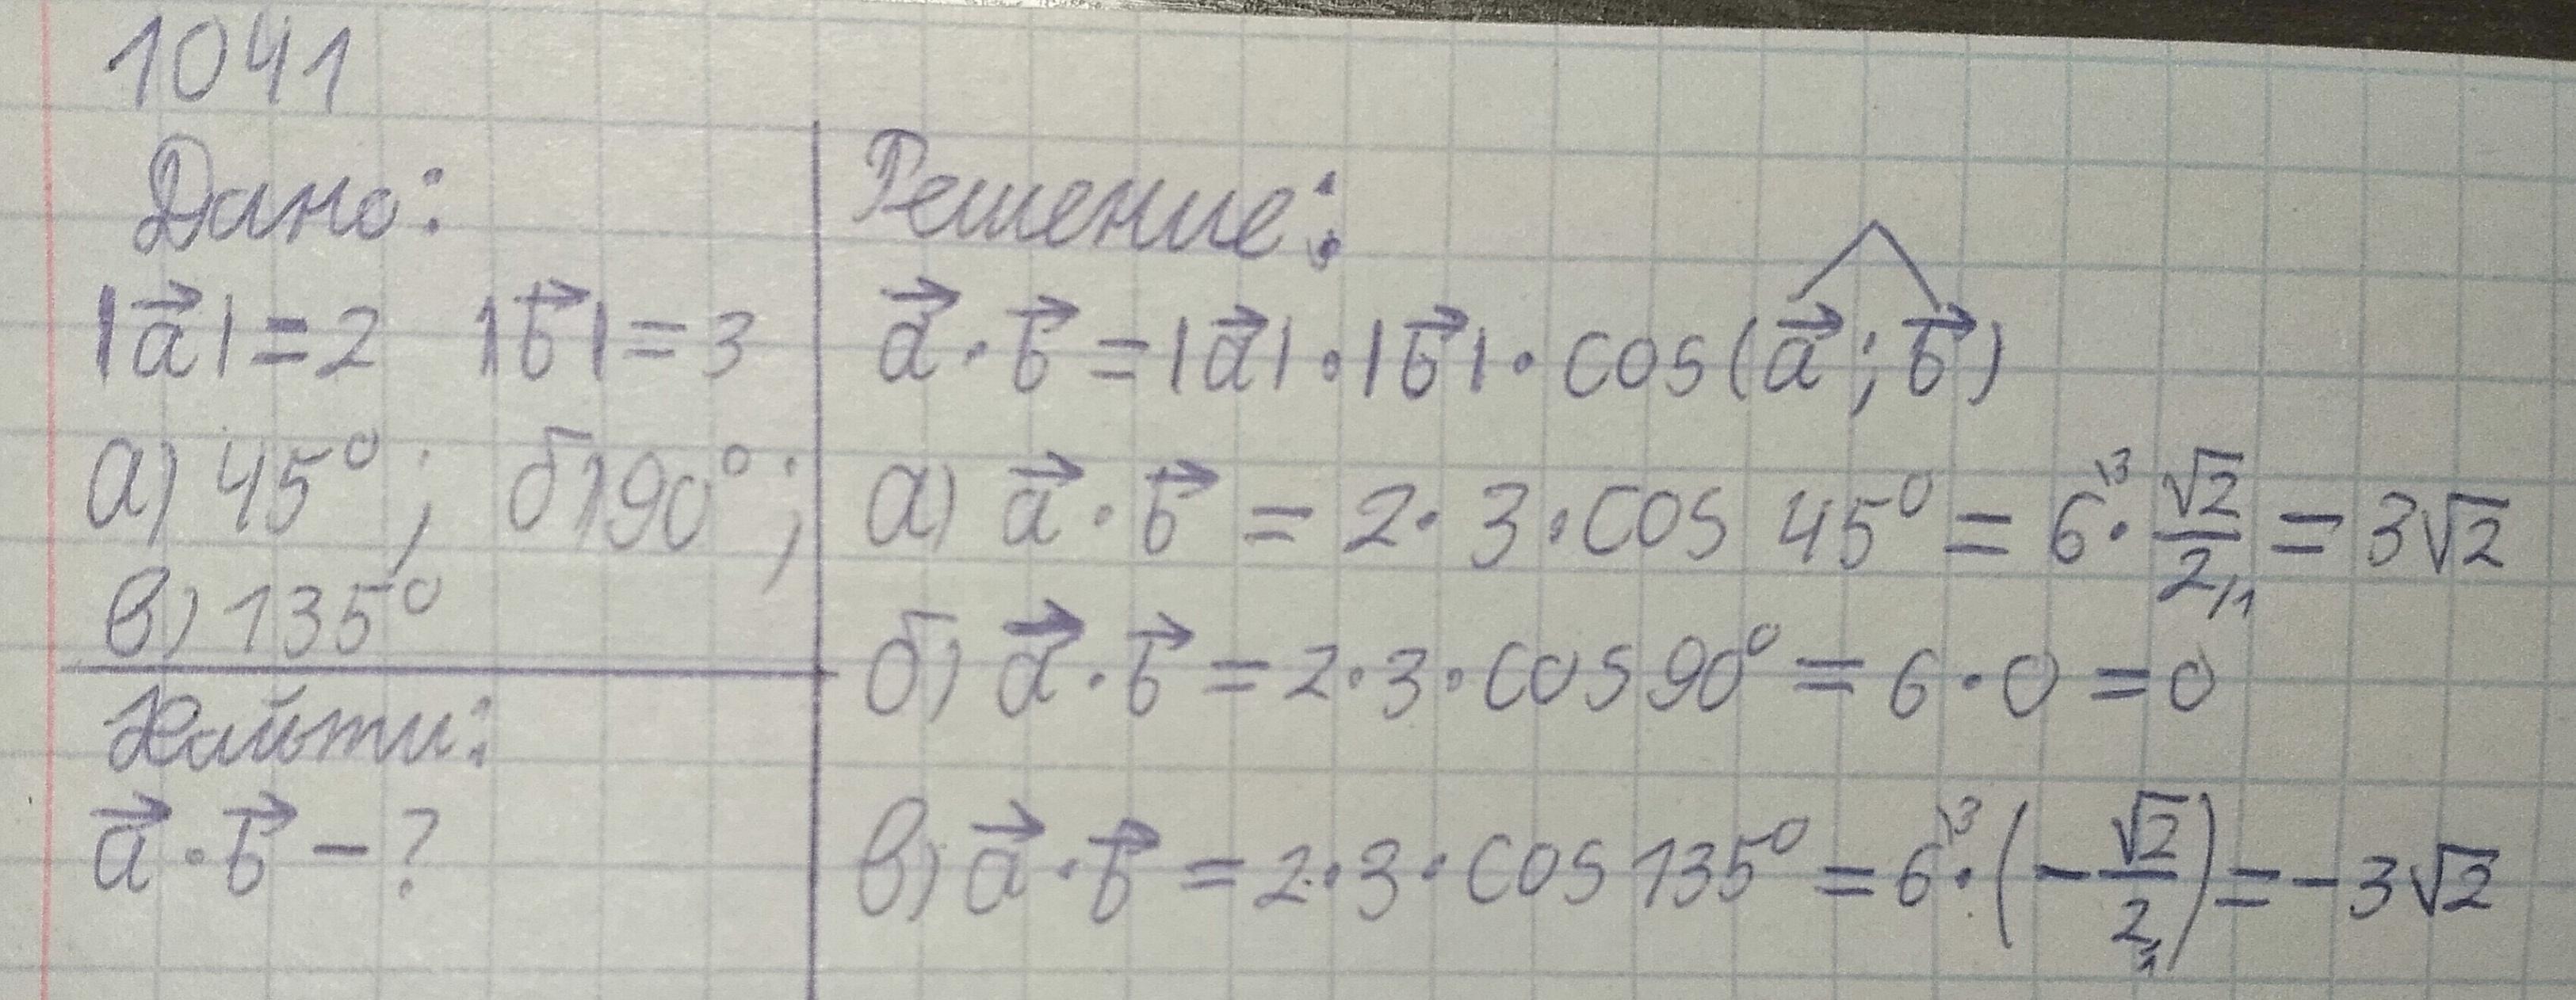 1041
Дано:
|a⃗| = 2 |b⃗| = 3
а) 45°; б) 90°;
в) 135°
Найти:
a⃗ · b⃗ - ?
Решение:
a⃗ · b⃗ = |a⃗| · |b⃗| · cos(a⃗; b⃗)
а) a⃗ · b⃗ = 2 · 3 · cos 45° = 6\3 · √2/2/1 = 3√2
б) a⃗ · b⃗ = 2 · 3 · cos 90° = 6 · 0 = 0
в) a⃗ · b⃗ = 2 · 3 · cos 135° = 6\3 · (-√2/2/1) = -3√2